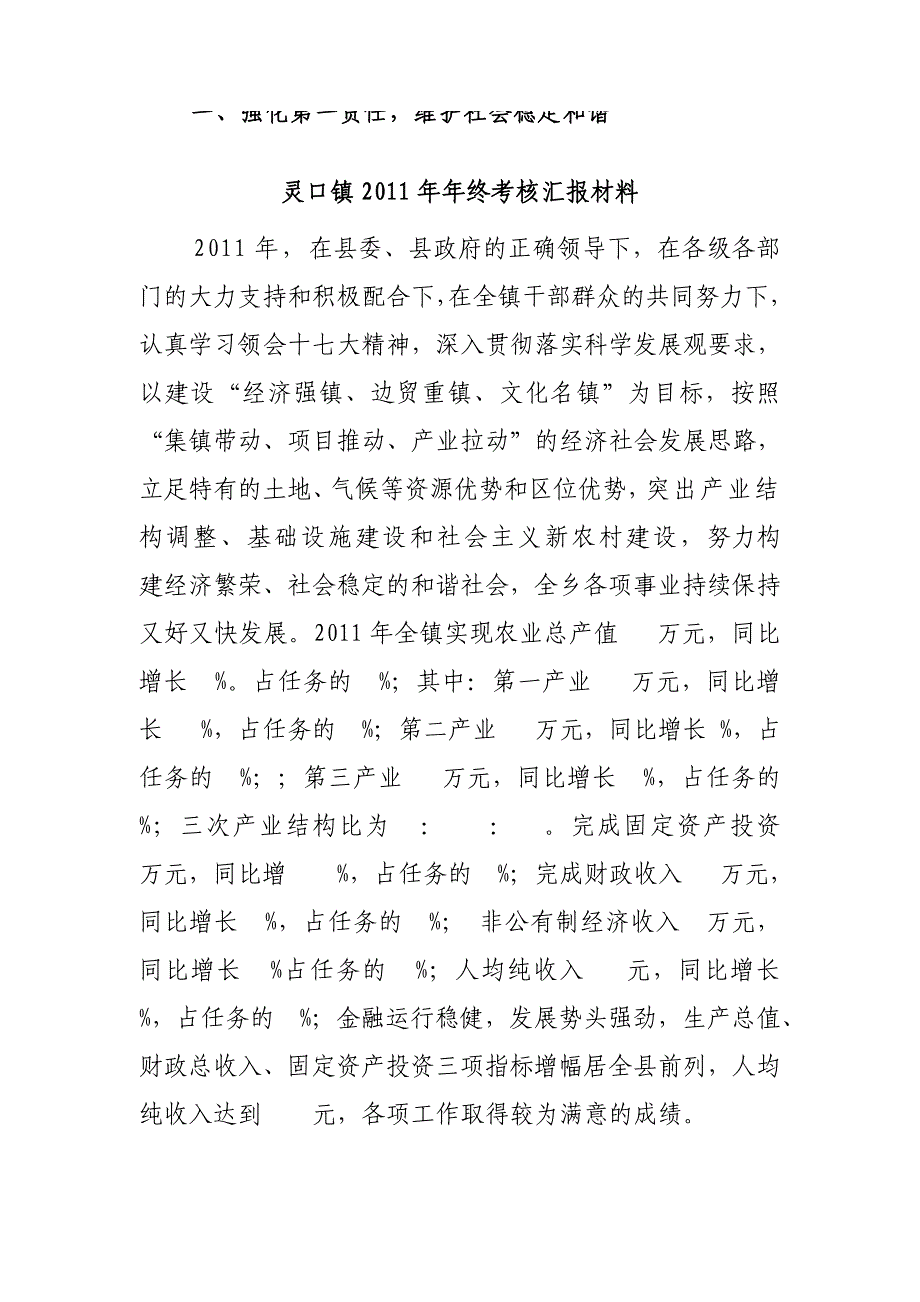 一、强化第一责任，维护社会稳定和谐
灵口镇 2011 年年终考核汇报材料
2011 年，在县委、县政府的正确领导下，在各级各部
门的大力支持和积极配合下，在全镇干部群众的共同努力下，
认真学习领会十七大精神，深入贯彻落实科学发展观要求，
以建设“经济强镇、边贸重镇、文化名镇”为目标，按照
“集镇带动、项目推动、产业拉动”的经济社会发展思路，
立足特有的土地、气候等资源优势和区位优势，突出产业结
构调整、基础设施建设和社会主义新农村建设，努力构
建经济繁荣、社会稳定的和谐社会，全乡各项事业持续保持
又好又快发展。2011 年全镇实现农业总产值 万元，同比
增长 %。占任务的 %；其中：第一产业 万元，同比增
长 %，占任务的 %；第二产业 万元，同比增长 %，占
任务的 %；；第三产业 万元，同比增长 %，占任务的
%；三次产业结构比为 ： ： 。完成固定资产投资
万元，同比增 %，占任务的 %；完成财政收入 万元，
同比增长 %，占任务的 %； 非公有制经济收入 万元，
同比增长 %占任务的 %；人均纯收入 元，同比增长
%，占任务的 %；金融运行稳健，发展势头强劲，生产总值、
财政总收入、固定资产投资三项指标增幅居全县前列，人均
纯收入达到 元，各项工作取得较为满意的成绩。